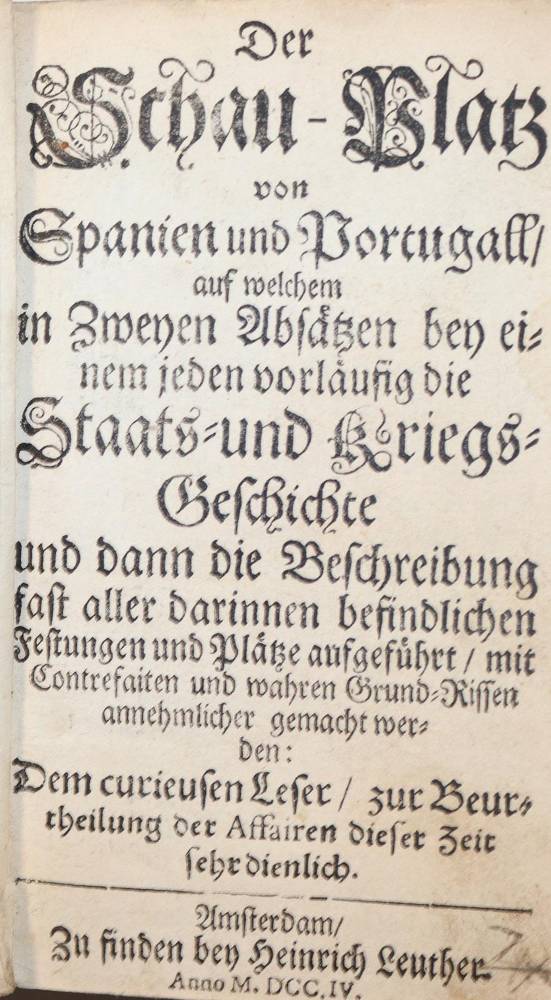 Der
Schau-Platz
von
Spanien und Portugall/
auf welchem
in Zweyen Absätzen bey ei-
nem jeden vorläufig die
Staats-und Kriegs-
Geschichte
und dann die Beschreibung
fast aller darinnen befindlichen
Festungen und Plätze aufgeführt/ mit
Contrefaiten und wahren Grund-Rissen
annehmlicher gemacht wer-
den:
Dem curieusen Leser/ zur Beur-
theilung der Affairen dieser Zeit
sehr dienlich.
Amsterdam/
Zu finden bey Heinrich Leuther.
Anno M. DCC. IV.